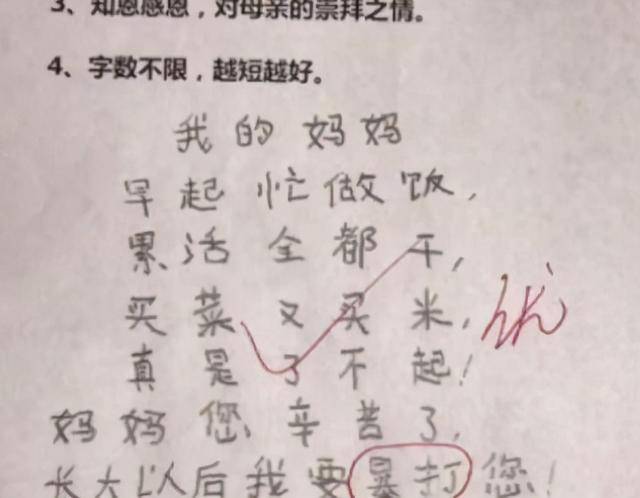 3、知恩感恩，对母亲的崇拜之情。
4、字数不限，越短越好。
我的妈妈
早起忙做饭，
累活全都干，
买菜又买米，
优
真是了不起！
妈妈您辛苦了，
长大以后我要暴打您！